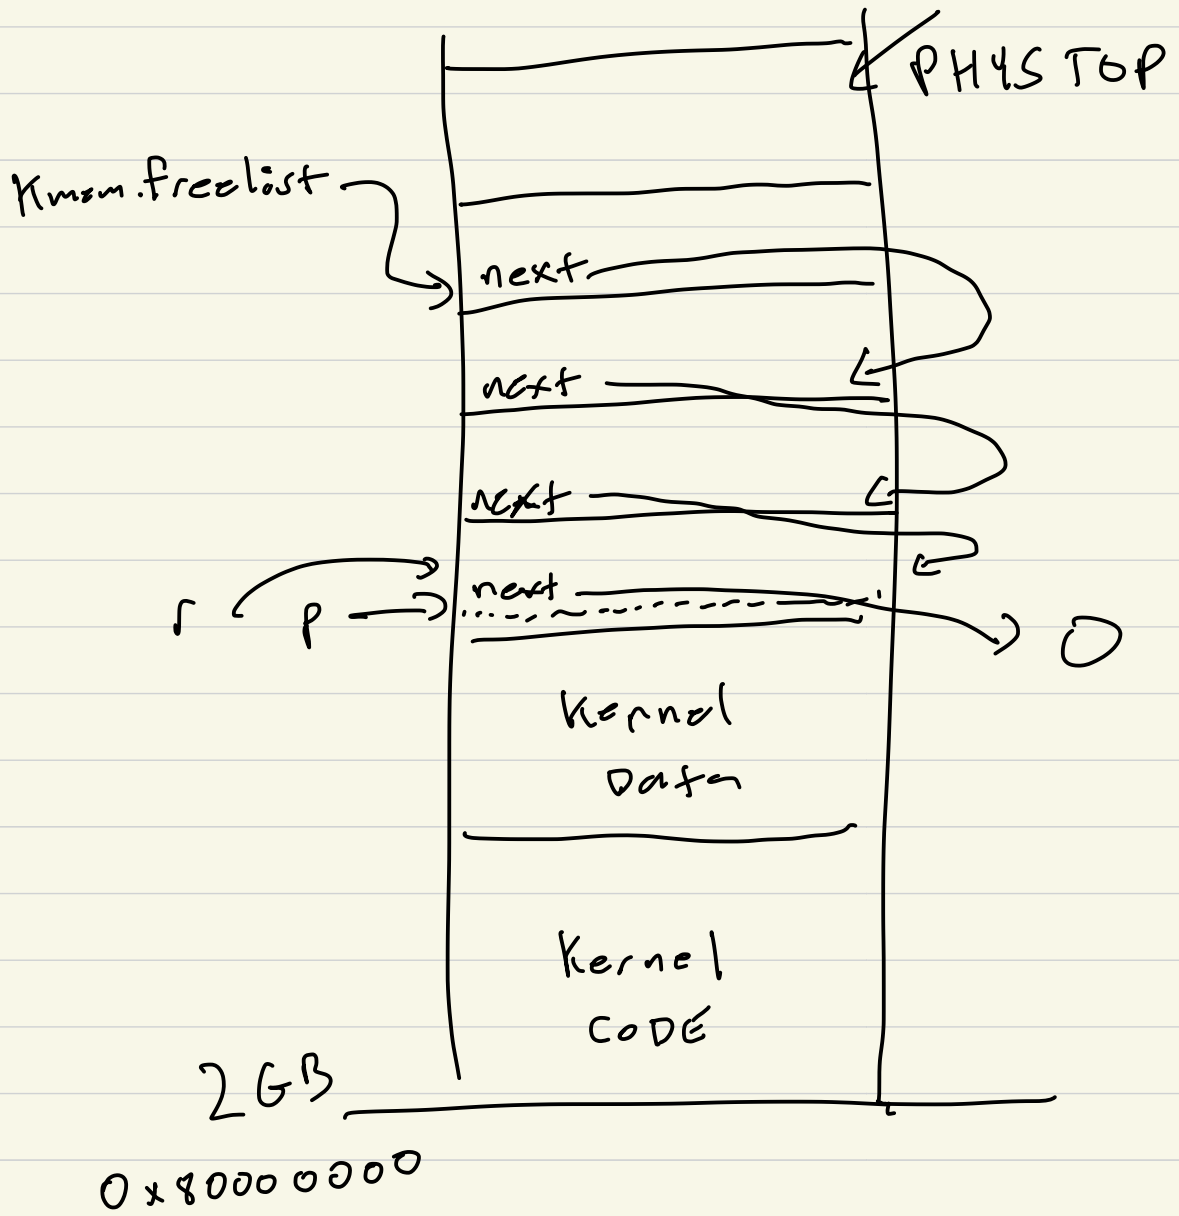 PHYSTOP
Kmem.freelist
next
next
next
next
r
p
0
Kernel
Data
Kernel
CODE
2GB
0x80000000